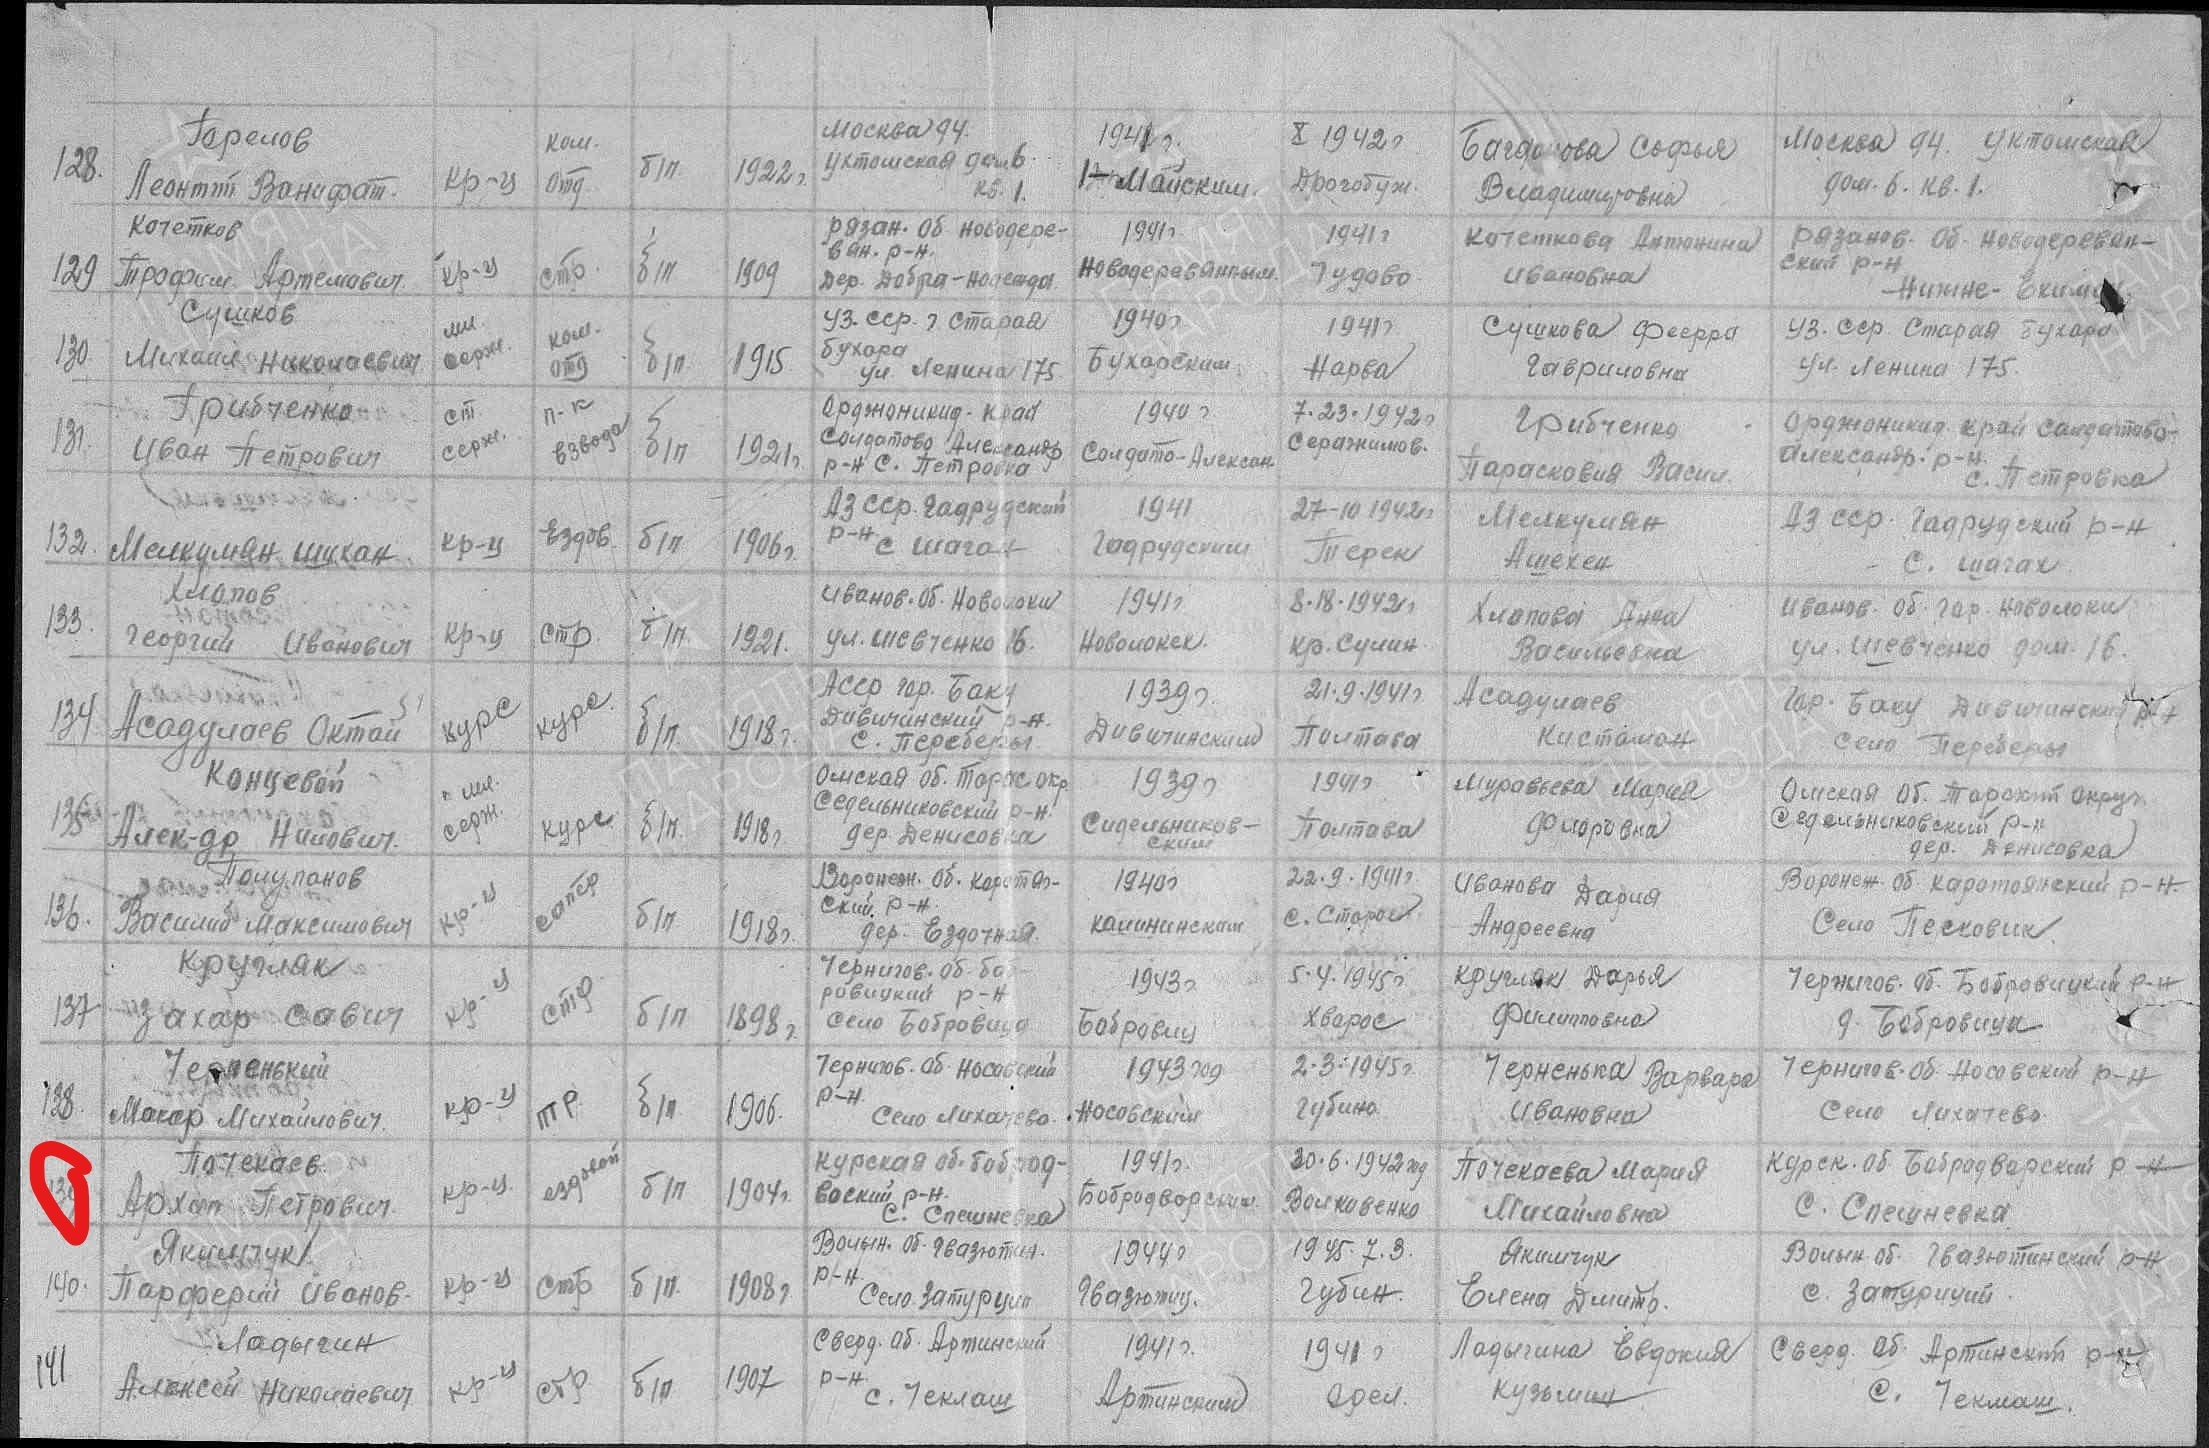 128. Горелов Леонтий Вонифат. кр-ц ком. отд. б/п 1922 г. Москва 94. Ухтомская дом 6. кв. 1. 1941 г. 1-Майским. X 1942 г Дрогобуж. Богданова Софья Владимировна Москва 94. Ухтомская дом. 6. кв. 1.
129 Кочетков Трофим Артемович. кр-ц стр. б/п 1909 Рязан. Об. Новодере- вян. р-н. Дер. Добра-Нодежда 1941 г. Новодеревянным. 1941 г Чудово Кочеткова Антонина Ивановна Рязанов. Об. Новодеревян- ский р-н Нижне-
130 Сушков Михаил Николаевич мл. серж. ком. отд б/п 1915 Уз. сср. г Старая Бухара ул Ленина 175 1940 г Бухарским. 1941 г Нарва Сушкова Гавриловна Уз. сср. Старая Бухара ул. Ленина 175.
131. Грибченко Иван Петрович ст серж. п-к взвода б/п 1921 г. Орджоникид. край Солдатово Александр р-н с. Петровка 1940 г. Солдато-Алексан. 7.23.1942 г Серажимов. Грибченко Парасковия Васил. Орджоникид. край Солдатово- Александр. р-н. с. Петровка
132. Мелкумян Шухан кр-ц Ездов. б/п 1906 г. Аз сср. Гадрудский р-н с Шагах 1941 Гадрудским 27-10 1942 г Терек Мелкумян Ашехен Аз сср. Гадрудский р-н с. Шагах
133. Хлопов Георгий Иванович кр-ц стр. б/п. 1921. Иванов. Об. Новолоки ул. Шевченко 16. 1941 г. Новолокск. 8.18.1942 г. кр. Сулин. Хлопова Анна Васильевна Иванов. об. гор. Новолоки ул. Шевченко дом. 16.
134. Асадулаев Октай курс курс. б/п. 1918 г. Асср гор. Баку Дивичинский р-н. с. Переберы 1939 г. Дивичинским 21.9.1941 г. Полтава Асадулаев Кистомон Гор. Баку Дивичинский р-н село Переберы
135 Концевой Алек-др Нилович. мл. серж. курс б/п. 1918 г. Омская об. Тарс окр Седельниковский р-н. дер. Денисовка 1939 г Сидельников- ским 1941 г Полтава Муравьева Мария Флоровна Омская Об. Тарский округ Седельниковский р-н дер. Денисовка
136. Полупанов Василий Максимович кр-ц сапер б/п 1918 г. Воронеж. Об. каротая- ский. р-н. дер. Ездочная. 1940 г Калининским 22.9.1941 г. Иванова Дария Андреевна Воронеж. об. каротоянский р-н. Село Песковик.
137 Кругляк Захар Савич кр-ц стр б/п 1898 г. Чернигов. Об. Боб- ровицкий р-н Село Бобровица 1943 г. Бобровиц 5.4.1945 г Хварос Кругляк Дарья Филипповна Чернигов. Об. Бобровицкий р-н д. Бобровица
138. Черненький Макар Михайлович. кр-ц б/п 1906. Чернигов. Об. Носовский р-н. Село Лихачево. 1943 год Носовским 2.3.1945 г. Губино. Черненька Варвара Ивановна Чернигов. Об. Носовский р-н Село Лихачево
139 Почекаев Архип Петрович. кр-ц. ездовой б/п 1904 г. Курская об. Боброд- воский р-н. с. Спешневка 1941 г. Бобродворским. 30.6.1942 год Волковенко Почекаева Мария Михайловна Курск. об. Бобродварский р-н с. Спешневка
140. Якимчук Парферий Иванов. кр-ц стр б/п. 1908 г. Волын. Об. р-н. Село. Затурции 1944 г 1945.7.3. Губин. Якимчук Елена Дмитр. Волын. об. р-н с. Затурций
141 Ладыгин Алексей Николаевич кр-ц стр б/п 1907 Сверд. Об. Артинский р-н. с. Чеклаш 1941 г. Артинским 1941 г Орел. Ладыгина Евдокия Кузьмин Сверд. Об. Артинский р-н с. Чекмаш.
ПАМЯТЬ НАРОДА